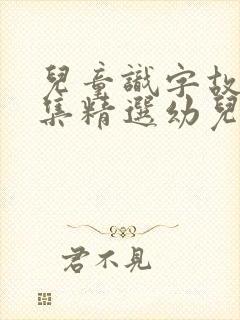 兒童識字故
集精選幼兒
君不見